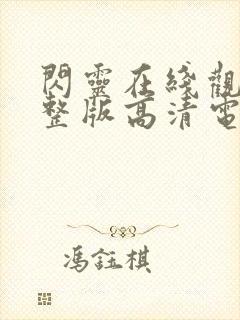 閃靈在綫觀
整版高清電
馮鈺棋